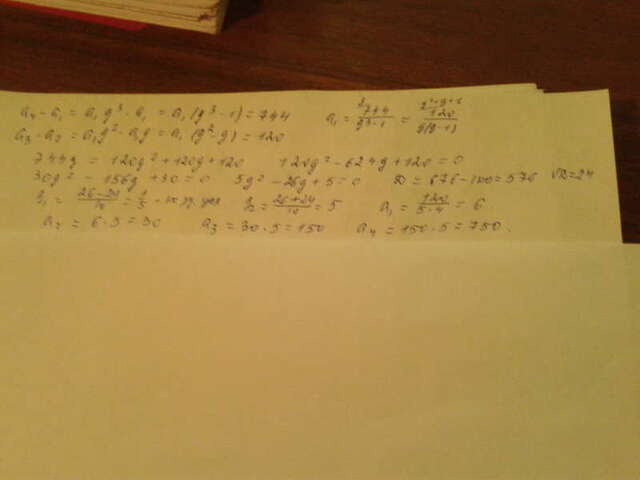 a₄ - a₁ = a₁g³ - a₁ = a₁(g³-1) = 744 a₁ = 744/(g³-1) = 120/(g(g-1))
a₃ - a₂ = a₁g² - a₁g = a₁(g²-g) = 120
744g = 120g² + 120g + 120 120g² - 624g + 120 = 0
30g² - 156g + 30 = 0 5g² - 26g + 5 = 0 D = 676 - 100 = 576 √D = 24
g₁ = (26-24)/10 = 1/5 g₂ = (26+24)/10 = 5 a₁ = 120/(5·4) = 6
a₂ = 6·5 = 30 a₃ = 30·5 = 150 a₄ = 150·5 = 750.